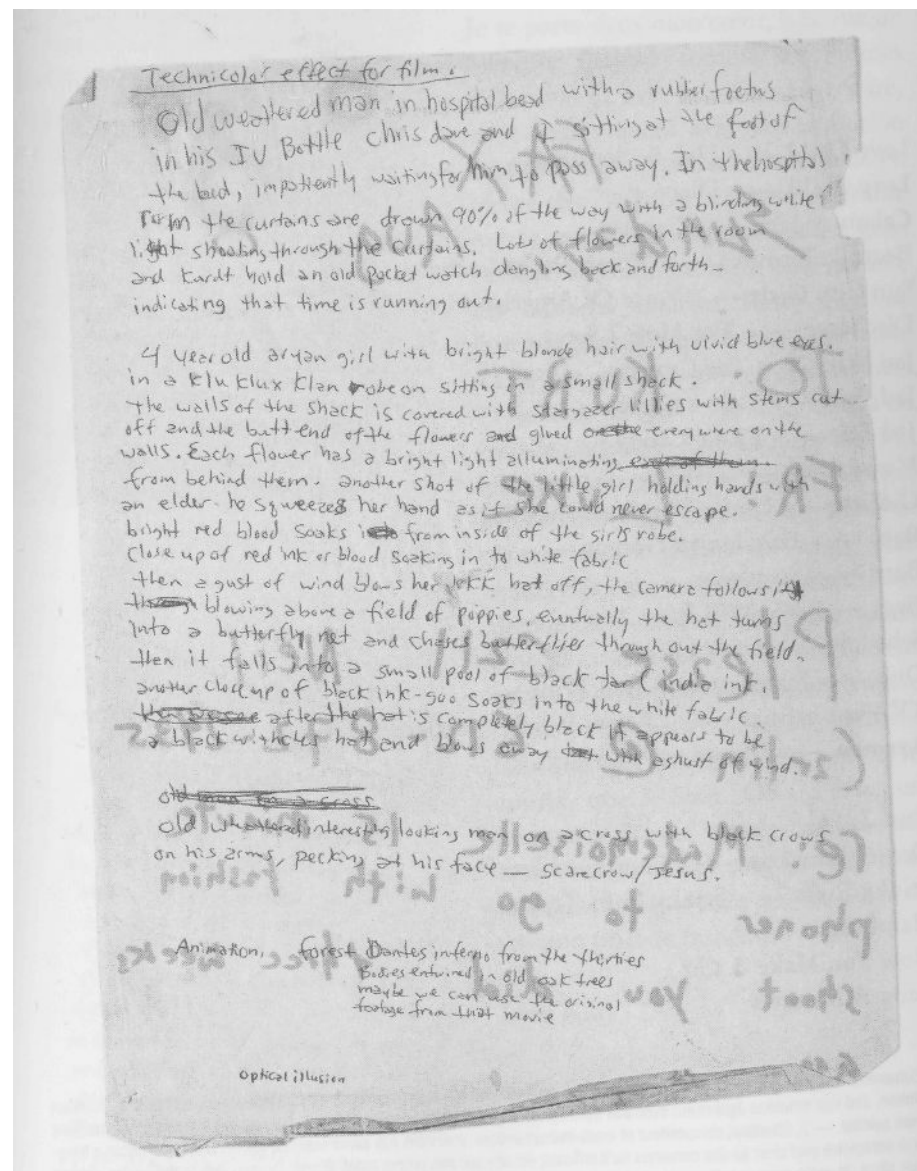 Technicolor effect for film.
Old weathered man in hospital bead with a rubber foetus
in his IV Bottle Chris dave and I sitting at the foot of
the bed, impatiently waiting for him to pass away. In the hospital
the curtains are drawn 90% of the way with a blinding white
light shooting through the curtains. Lots of flowers in the room
and Kurdt hold an old pocket watch dangling back and forth -
indicating that time is running out.
4 year old aryan girl with bright blonde hair with vivid blue eyes.
in a Klu Klux Klan robe on sitting in a small shack.
The walls of the shack is covered with stargazer lillies with stems cut
off and the butt end of the flowers and glued everywhere on the
walls. Each flower has a bright light alluminating
from behind them. another shot of the little girl holding hands with
an elder - he squeezes her hand as if she could never escape.
bright red blood soaks from inside of the girls robe.
Close up of red ink or blood soaking in to white fabric
then a gust of wind blows her KKK hat off, the camera follows it
blowing above a field of poppies, eventually the hat turns
into a butterfly net and chases butterflies through out the field.
then it falls into a small pool of black tar (india ink.
another close up of black ink-goo soaks into the white fabric.
after the hat is completely black it appears to be
a black witches hat and blows away with a ghust of wind.
old man on a cross
old interesting looking man on a cross with black crows
on his arms, pecking at his face — Scarecrow/Jesus.
Animation. forest Dantes inferno from the thirties
Bodies entwined in old oak trees
maybe we can use the original
footage from that movie
optical illusion
FAX
Sunday
TO: KURT
FR:
Please
re: Mademoiselle
phoner to go with fashion
shoot you did three weeks